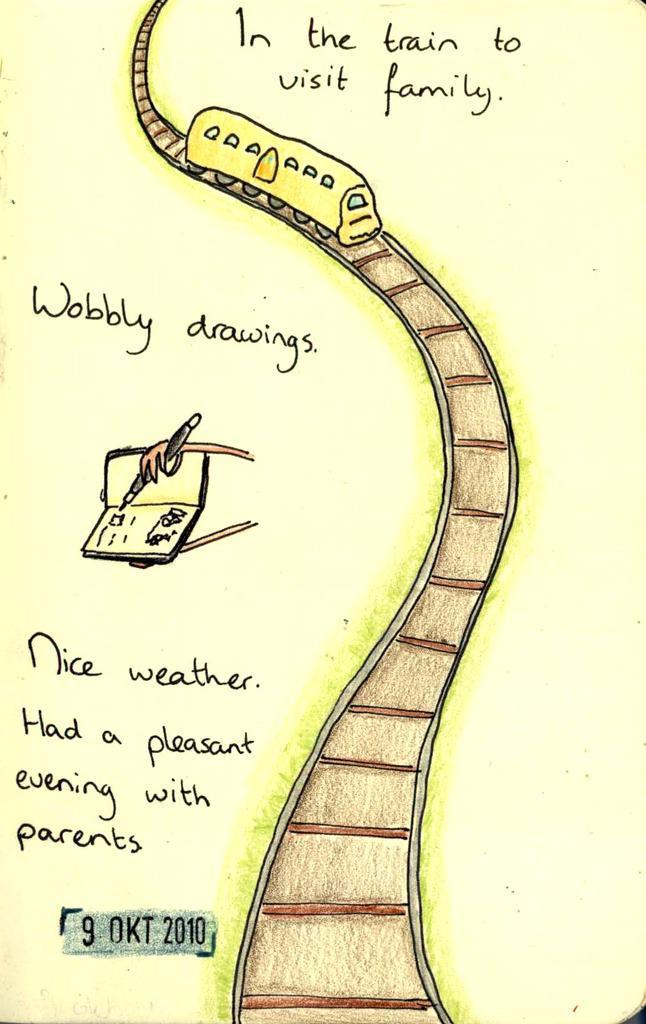 In the train to
visit family.
Wobbly drawings.
Nice weather.
Had a pleasant
evening with
parents
9 OKT 2010